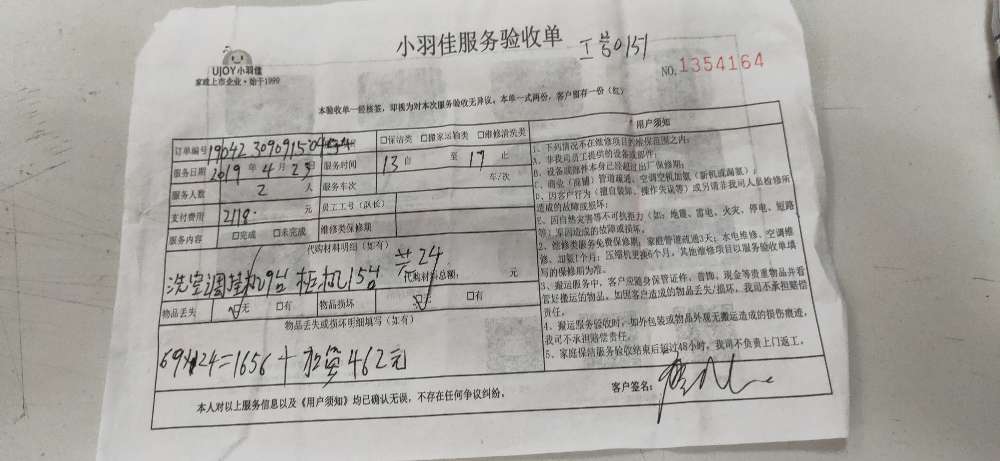 小羽佳服务验收单
工号0151
UJOY小羽佳
家政上市企业·始于1999
NO.1354164
本验收单一经核签，即视为对本次服务验收无异议。本单一式两份，客户留存一份（红）
订单编号 19042309091504
□保洁类 □搬家运输类 □维修清洗类
服务日期 2019 年 4 月 23 日 服务时间 13 自 至 17 止
服务人数 2 人 服务车次 车/次
支付费用 2118. 元 员工工号（队长）
服务内容 □完成 □未完成 维修类保修期
代购材料明细（如有）
洗空调挂机9台 柜机15台 共24
代购材料总额： 元
物品丢失 ☑无 □有 物品损坏 ☑无 □有
物品丢失或损坏明细填写（如有）
69×24=1656 + 462元
本人对以上服务信息以及《用户须知》均已确认无误，不存在任何争议纠纷。
用户须知
1、下列情况不在维修项目的维保范围之内：
A、非我司员工提供的设备或部件；
B、设备或部件本身已经超过出厂保修期；
C、商业（商铺）管道疏通、空调空机加氨（新机或漏氨）；
D、因客户行为（擅自装卸、操作失误等）或另请非我司人员检修所
造成的故障或损坏；
E、因自然灾害等不可抗拒力（如：地震、雷电、火灾、停电、短路
等）原因造成的故障或损坏。
2、维修类服务免费保修期：家庭管道疏通3天；水电维修、空调维
修、加氨1个月；压缩机更换6个月，其他维修项目以服务验收单填
写的保修期为准。
3、搬运服务中，客户应随身保管证件、首饰、现金等贵重物品并看
管好搬运的物品，如因客户造成的物品丢失/损坏，我司不承担赔偿
责任。
4、搬运服务验收时，如外包装或物品外观无搬运造成的损伤痕迹，
我司不承担赔偿责任。
5、家庭保洁服务验收结束后超过48小时，我司不负责上门返工。
客户签名：